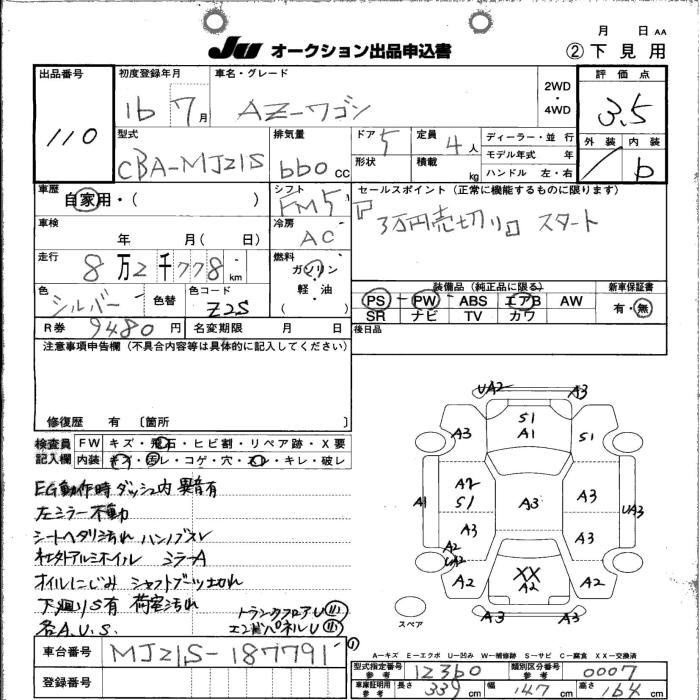 月 日 AA
JU オークション出品申込書
② 下見用
出品番号
110
初度登録年月
16 7月
車名・グレード
AZ-ワゴン
2WD・4WD
評価点
3.5
外装 内装
b
型式
CBA-MJ21S
排気量
660 CC
ドア 5
定員 4人
形状
積載 kg
ディーラー・並行
モデル年式 年
ハンドル 左・右
車歴
自家用・( )
シフト
FM5
セールスポイント（正常に機能するものに限ります）
『3万円売切り』 スタート
車検
年 月( 日)
冷房
AC
走行
8万2千778km
燃料
ガソリン・軽・油
( )
色
シルバー
色替
色コード
Z2S
装備品（純正品に限る）
PS PW ABS エアB AW
SR ナビ TV カワ
新車保証書
有・無
R券 9480円
名変期限 月 日
後日品
注意事項申告欄（不具合内容等は具体的に記入してください）
修復歴 有 〔箇所 〕
検査員記入欄
FW キズ・飛石・ヒビ割・リペア跡・X要
内装 キズ・汚レ・コゲ・穴・スレ・キレ・破レ
EG動作時ダッシュ内異音有
左ミラー不動
シートヘタリ汚れ ハンノブスレ
社外アルミホイル ミラーA
オイルにじみ シャフトブーツ切れ
下廻りS有 荷室汚れ
各A.U.S.
トランクフロアU
エンドパネルU
UA2 A3
A3 S1 A1 S1
A2 S1 A3 A3
A1 UA3
A3 A3
A2
A2 XX A2 A2
A3 A3
スペア
A－キズ E－エクボ U－凹み W－補修跡 S－サビ C－腐食 XX－交換済
車台番号
MJ21S-187791
登録番号
型式指定番号 参考 12360
類別区分番号 参考 0007
車庫証明用 参考 長さ 339cm 幅 147cm 高さ 164cm